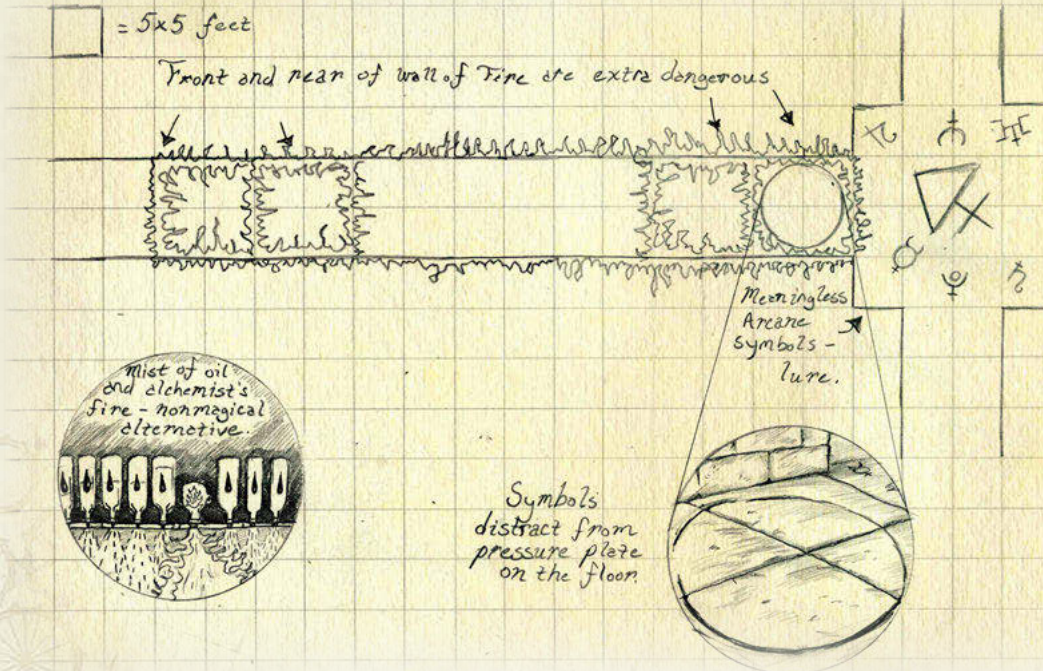 = 5x5 feet
Front and rear of wall of Fire are extra dangerous
Meaningless
Arcane
symbols -
lure.
mist of oil
and alchemist's
fire - nonmagical
alternative.
Symbols
distract from
pressure plate
on the floor.